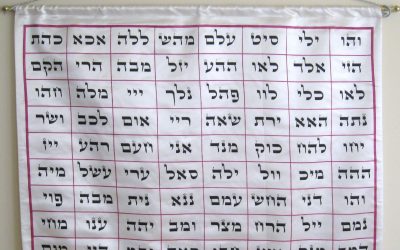 והו ילי סיט עלם מהש ללה אכא כהת
הזי אלד לאו ההע יזל מבה הרי הקם
לאו כלי לוו פהל נלך ייי מלה חהו
נתה האא ירת שאה ריי אום לכב ושר
יחו להח כוק מנד אני חעם רהע ייז
ההה מיכ וול ילה סאל ערי עשל מיה
והו דני החש עמם ננא נית מבה פוי
נמם ייל הרח מצר ומב יהה ענו מחי
דמב מנק איע חבו ראה יבם היי מום